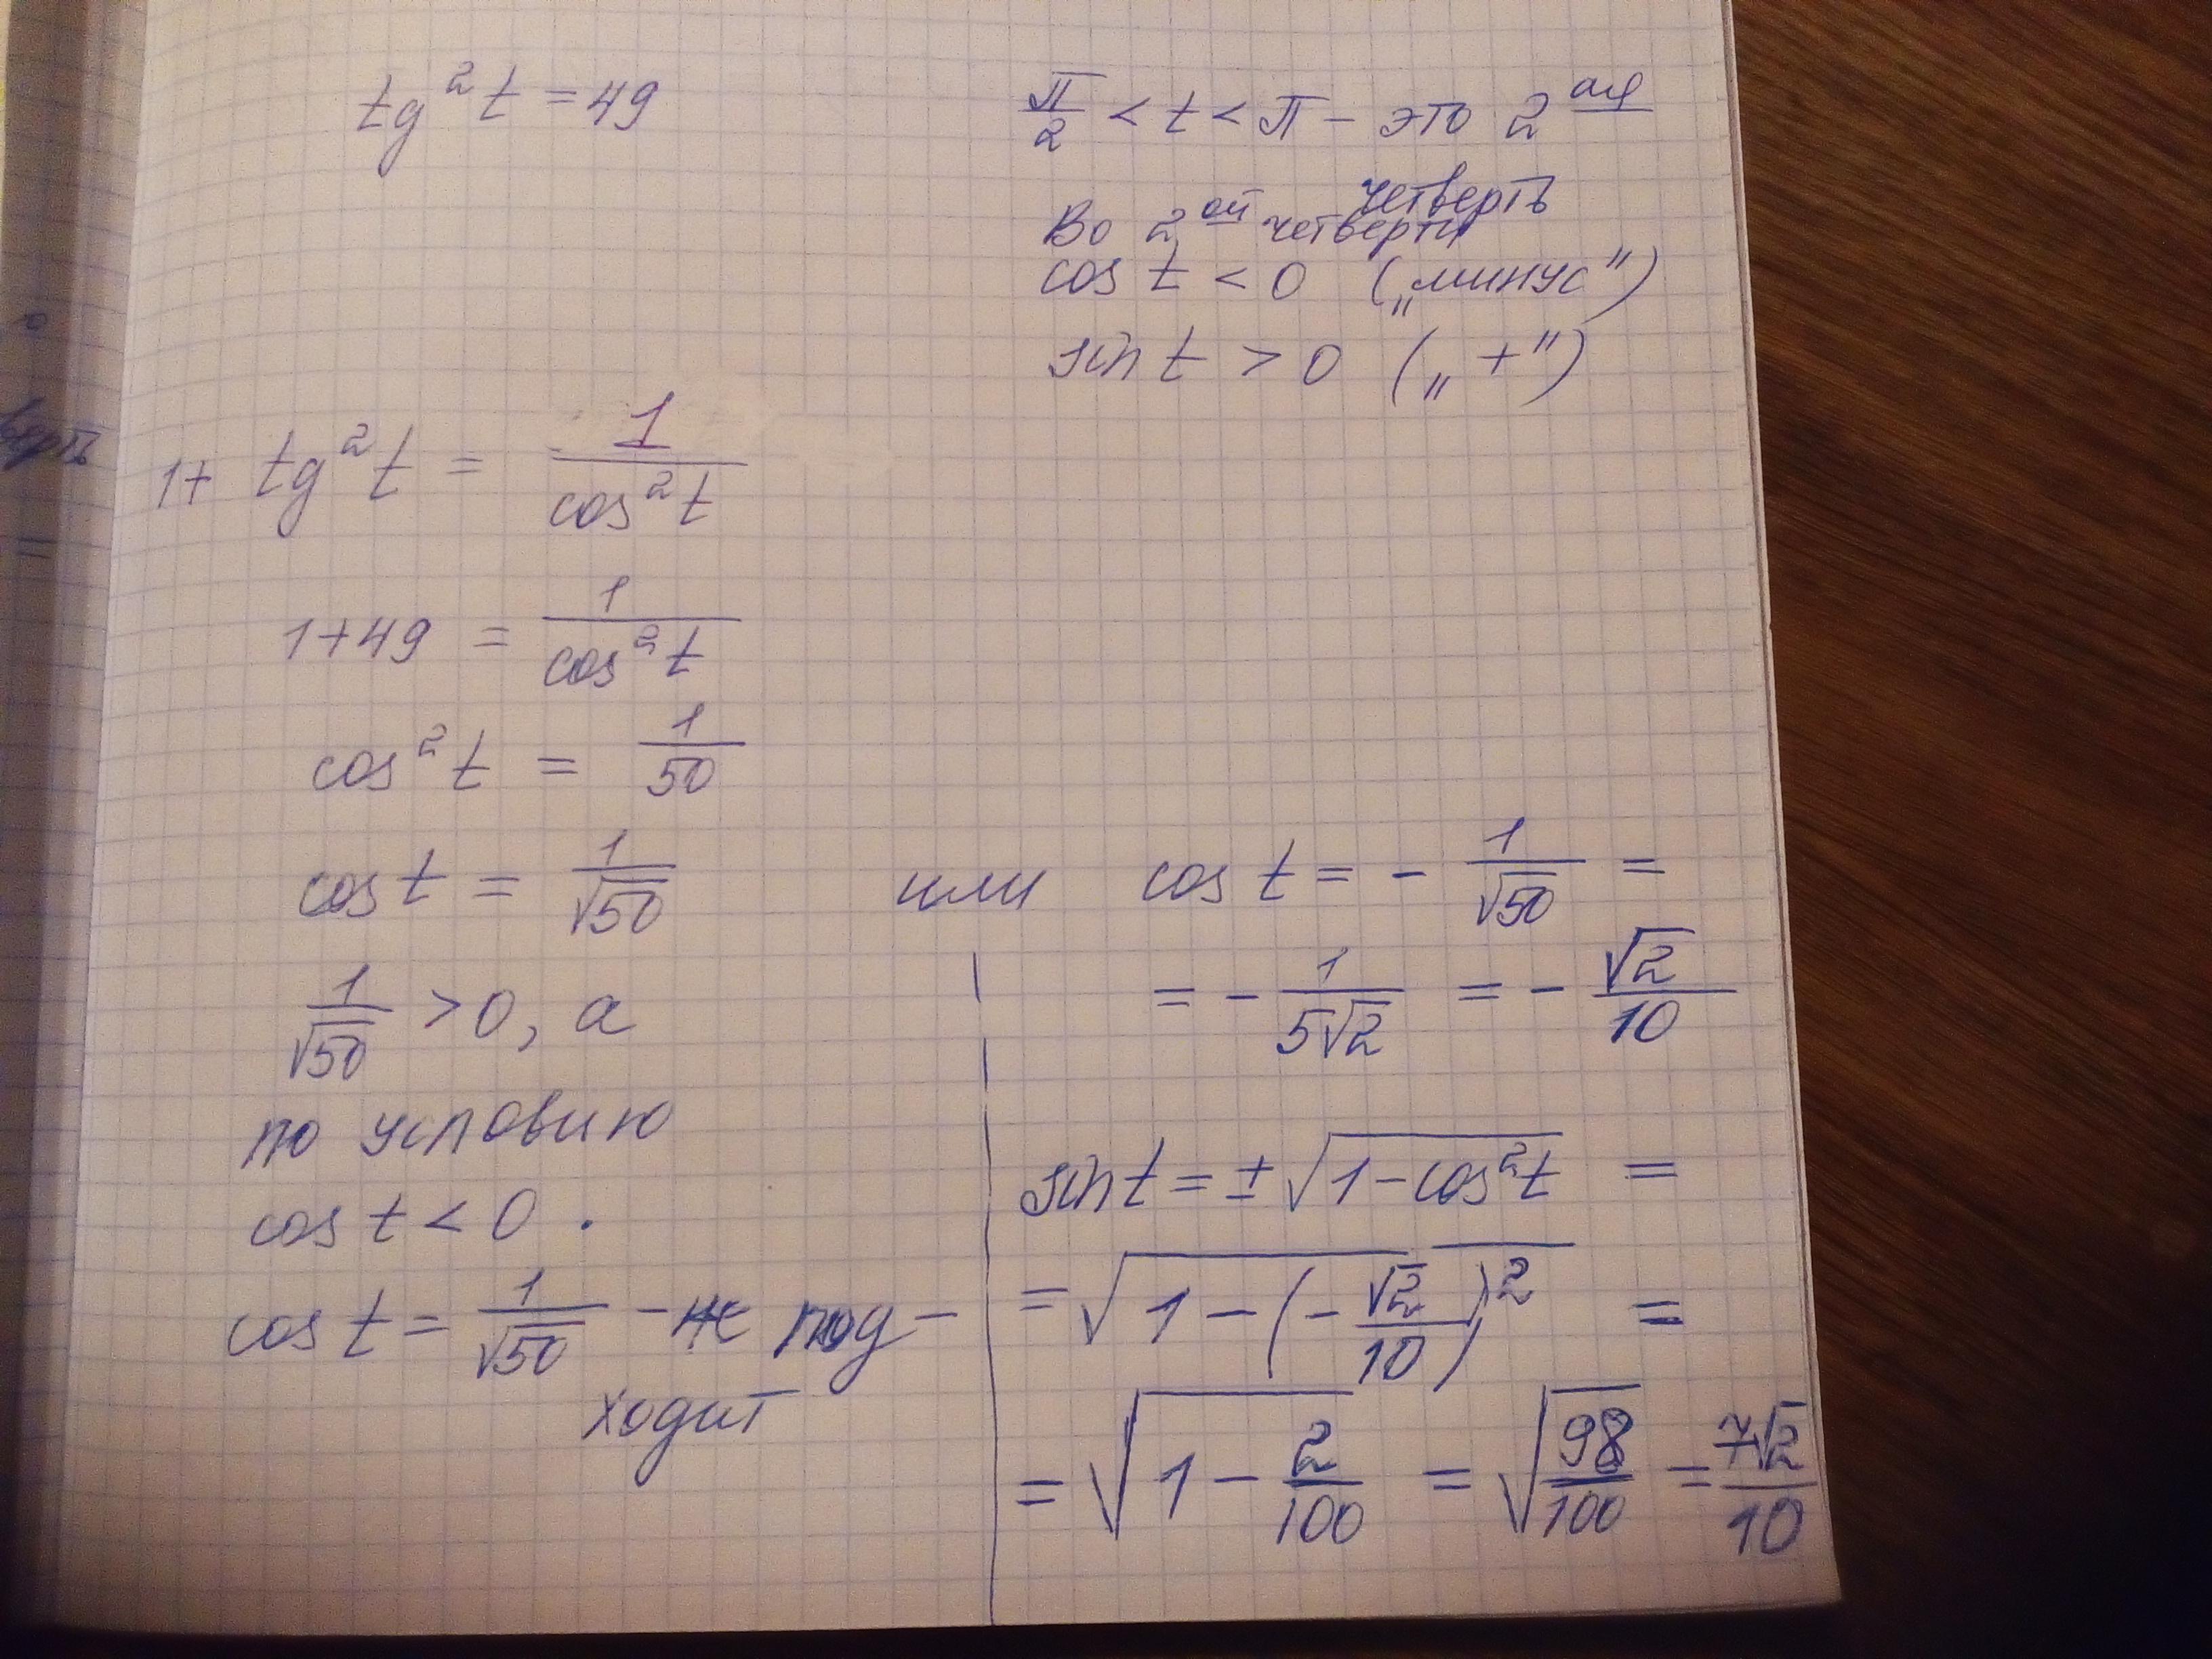 tg²t = 49
π/2 < t < π – это 2ая
четверть
Во 2ой четверти
cos t < 0 („минус")
sin t > 0 („+")
1+ tg²t = 1/cos²t
1+49 = 1/cos²t
cos²t = 1/50
cos t = 1/√50 или cos t = - 1/√50 =
1/√50 > 0, а
по условию
cos t < 0 .
cos t = 1/√50 – не под-
ходит
= - 1/5√2 = - √2/10
sin t = ± √1-cos²t =
= √1-(-√2/10)² =
= √1 - 2/100 = √98/100 = 7√2/10
верть